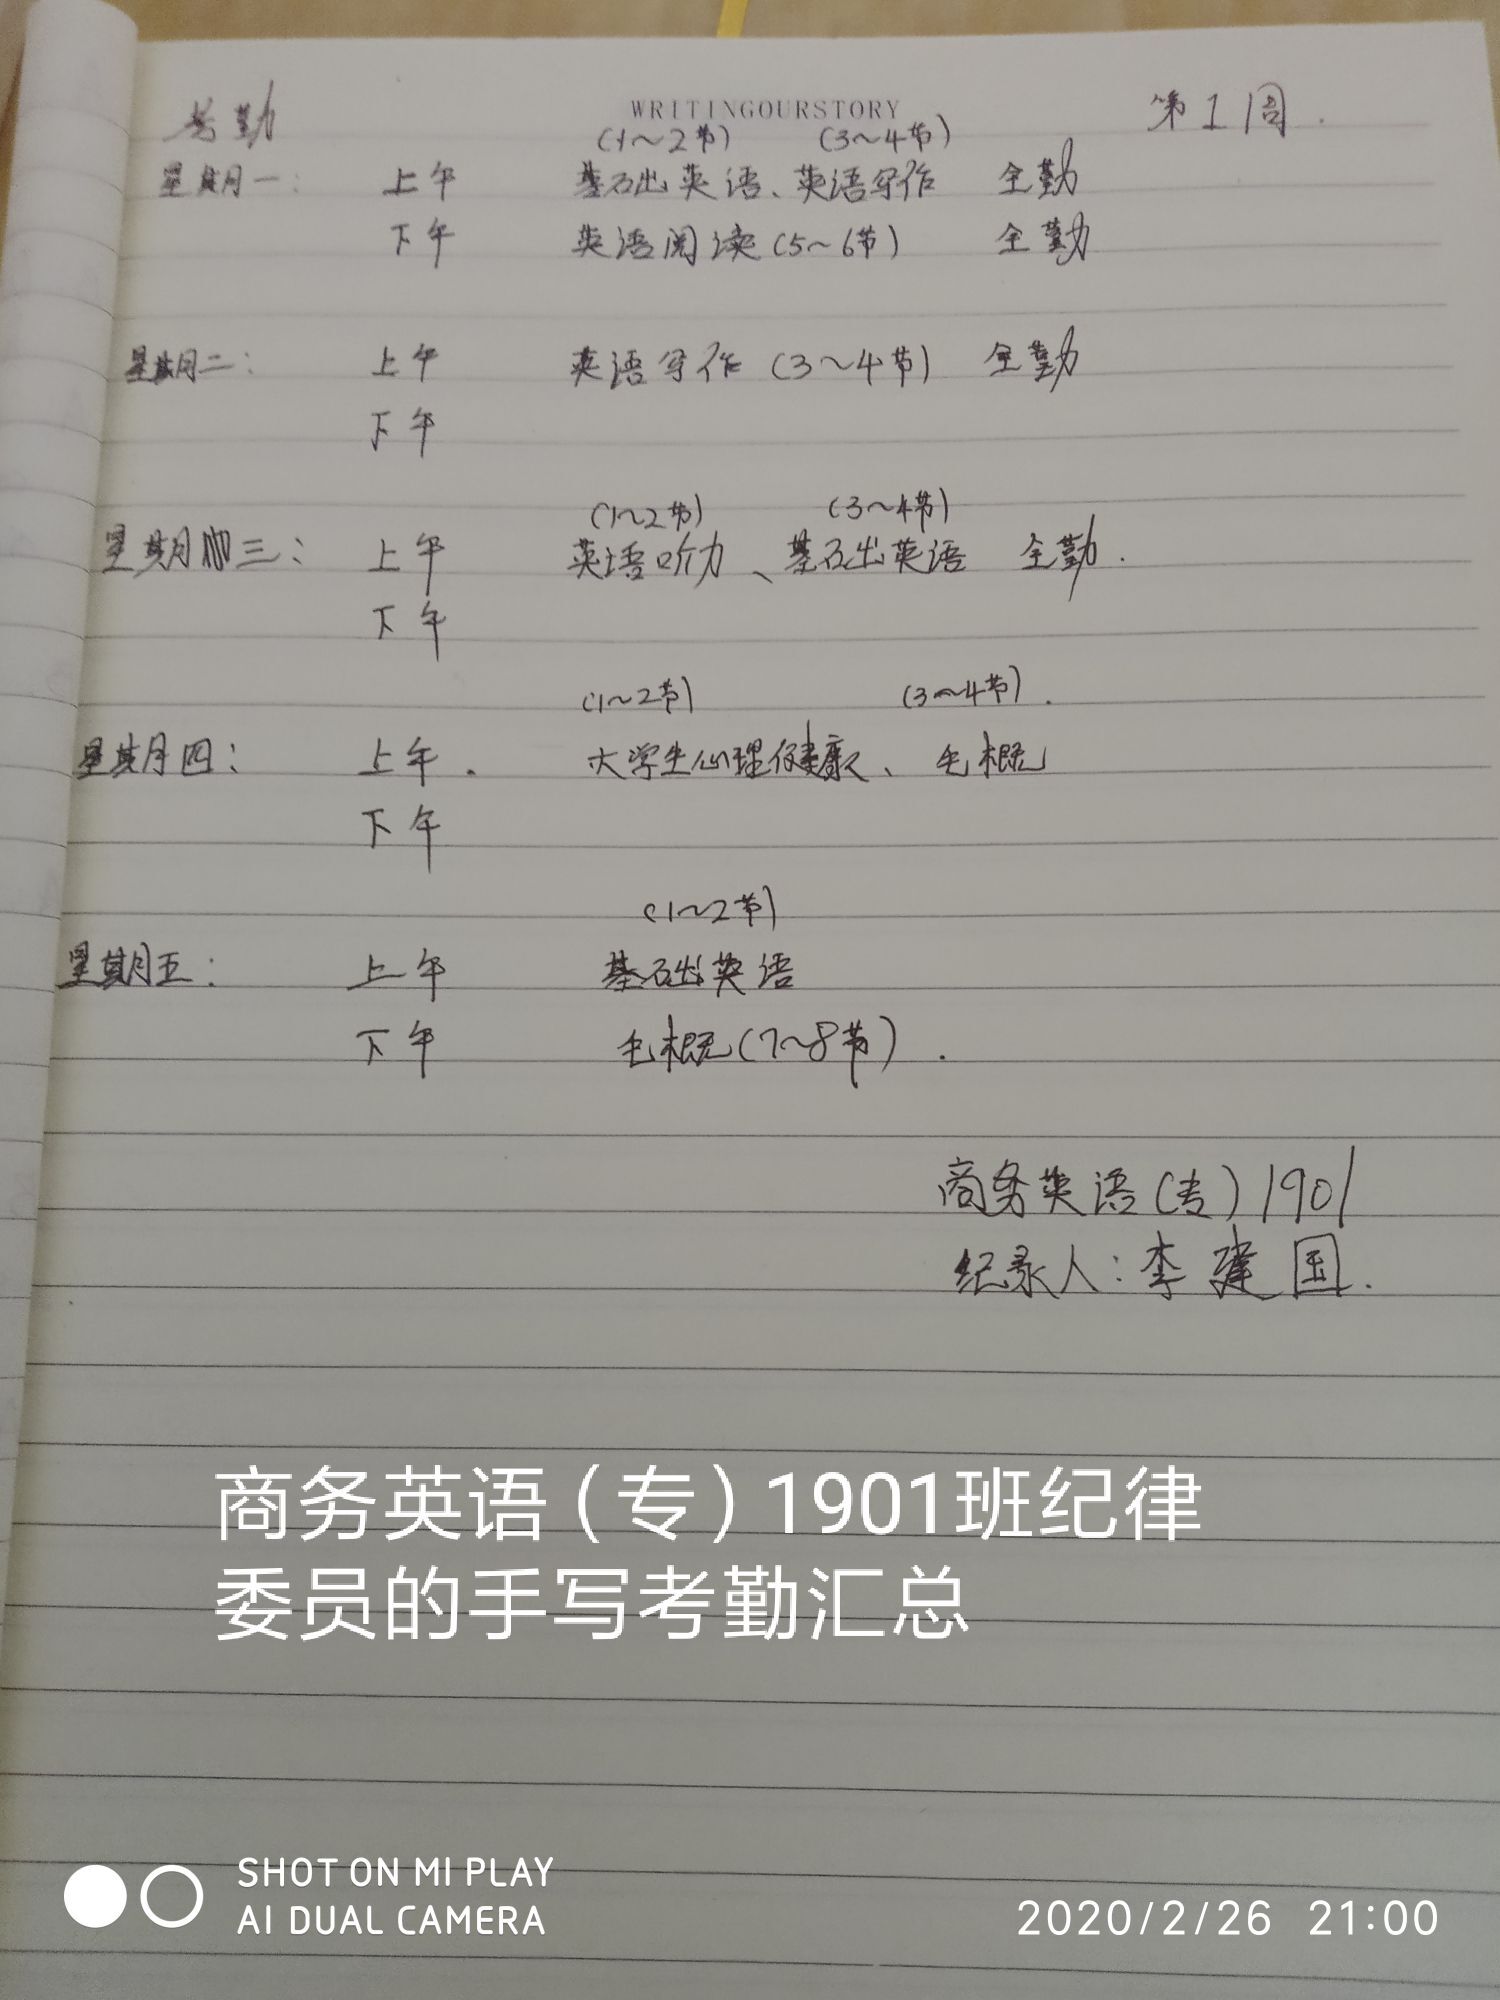 WRITINGOURSTORY
考勤 第1周.
(1~2节) (3~4节)
星期一: 上午 基础英语、英语写作 全勤
下午 英语阅读(5~6节) 全勤
星期二: 上午 英语写作(3~4节) 全勤
下午
(1~2节) (3~4节)
星期三: 上午 英语听力、基础英语 全勤.
下午
(1~2节) (3~4节).
星期四: 上午. 大学生心理健康、毛概
下午
(1~2节)
星期五: 上午 基础英语
下午 毛概(7~8节).
商务英语(专)1901
纪录人:李建国.
商务英语(专)1901班纪律
委员的手写考勤汇总
SHOT ON MI PLAY
AI DUAL CAMERA
2020/2/26 21:00